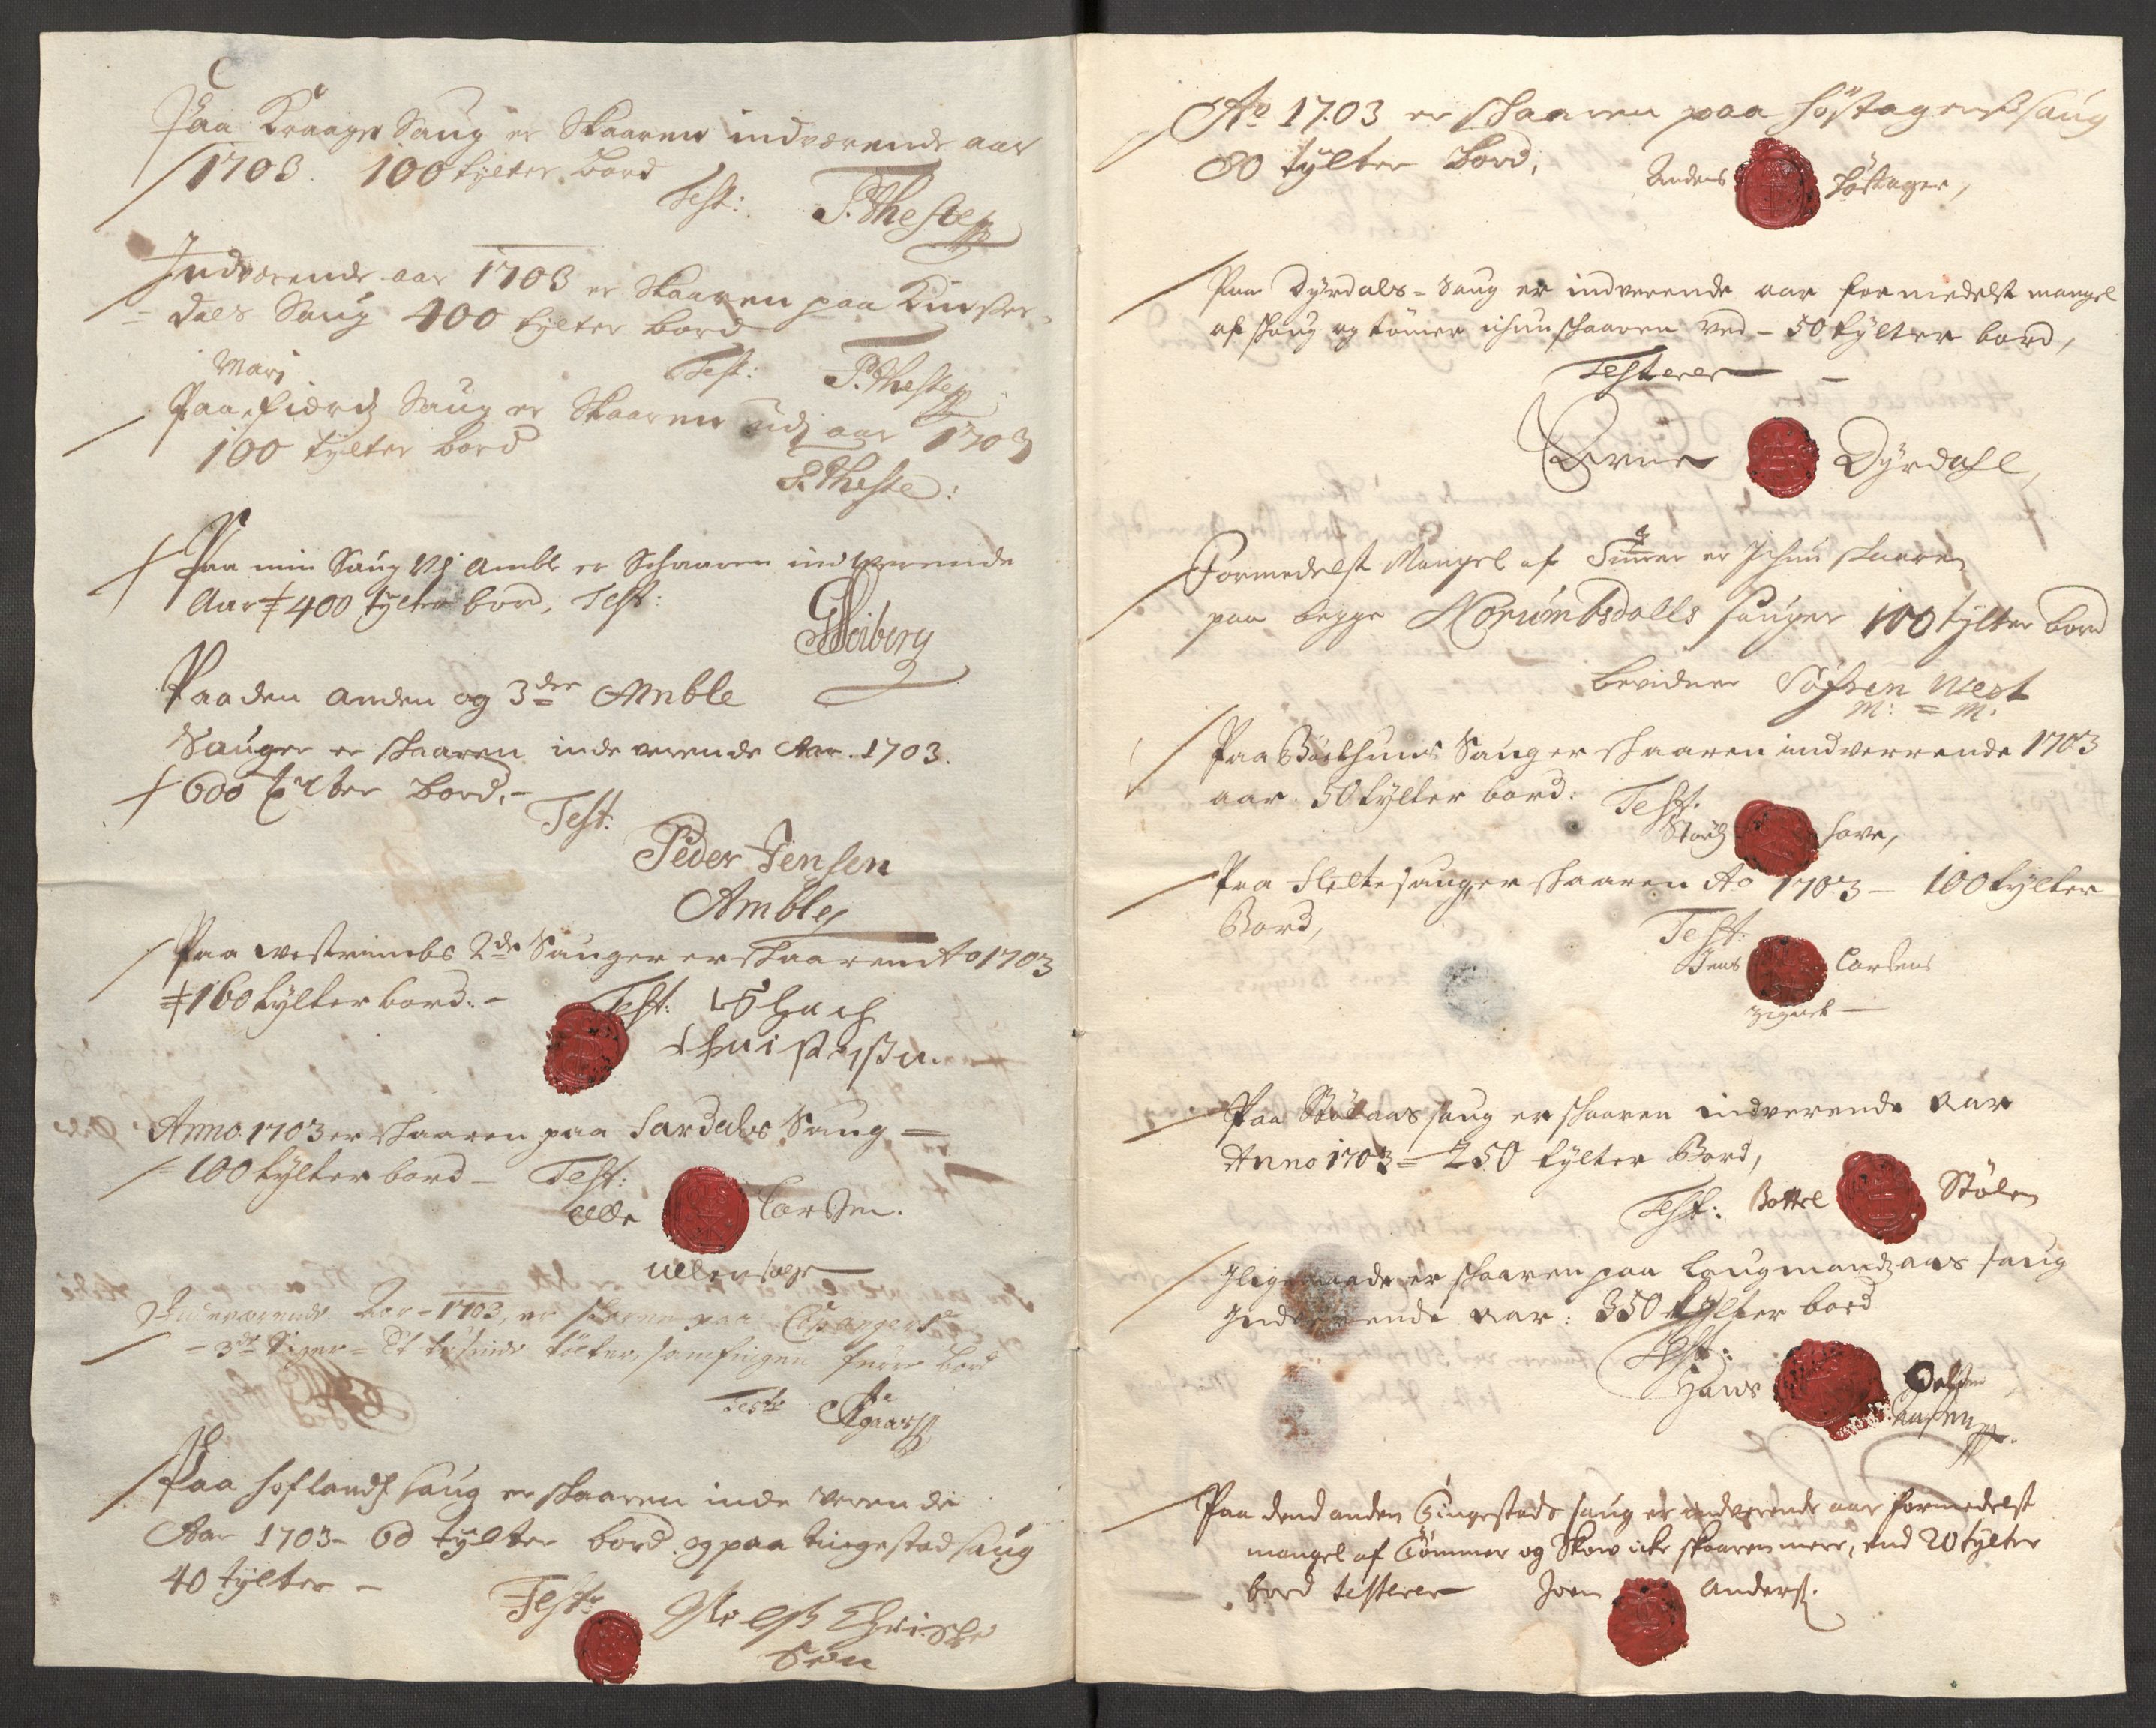 Paa Kraager Saug er Skaaren indværende aar
1703. 100 tylter bord
Test: T. Theste
Indværende aar 1703 er Skaaren paa
dals Saug 400 tylter bord
Test: T. Theste
Mari
Paa fierd Saug er Skaaren udj aar 1703
100 tylter bord
T. Theste:
Paa min Saug vj Amble er Schaaren indverende
Aar 400 tylter bord, Test:
GHeiberg
Paa den anden og 3de Amble
Sauger er skaaren inde verende Aar 1703.
600 tylter bord.-
Test:
Peder Jensen
Amble
Paa westrimbs 2de Sauger er skaaren Ao 1703
160 tylter bord.-
Test:
Anno 1703 er skaaren paa Sardals Saug =
100 tylter bord - Test:
Olle Larsen.
Indeværende Aar - 1703, er skaaren paa
- 3de Siger = Et tusinde tølter, furre bord
Test
Paa hoflands saug er skaaren inde verende
Aar 1703 - 60 tylter bord og paa tingestad saug
40 tylter -
Test: Christo
Søn
Ao 1703 er skaaren paa Høstagers saug
80 tylter bord,
Anders Høstager,
Paa Dyrdals = Saug er indverende aar formedelst mangel
af skoug og tømer ichun skaaren ved - 50 tylter bord,
Testerer -
Arne Dyrdahl,
Formedelst Mangel af Timer er Ichun skaaren
paa begge Norumbsdalls sauger 100 tylter bord
bevidner Søfren Niest
M: = M:
Paa Børthuns Saug er skaaren indverrende 1703
aar. 50 tylter bord: Test.
hove,
Paa Sleltesaug er skaaren Ao 1703 - 100 tylter
Bord,
Test:
Jens Larsens
zignet -
Paa Stølaas saug er skaaren indverende aar
Anno 1703 = 250 tylter Bord,
Test: Bottel Stølen
Jligemaade er skaaren paa Laugmandzaas saug
Indverende aar: 350 tylter bord
Test:
Hans
Paa dend anden Tingestads saug er indverende aar formedelst
mangel af Tømmer og Skow icke skaaren mere, end 20 tylter
bord testerer Joen Anders: